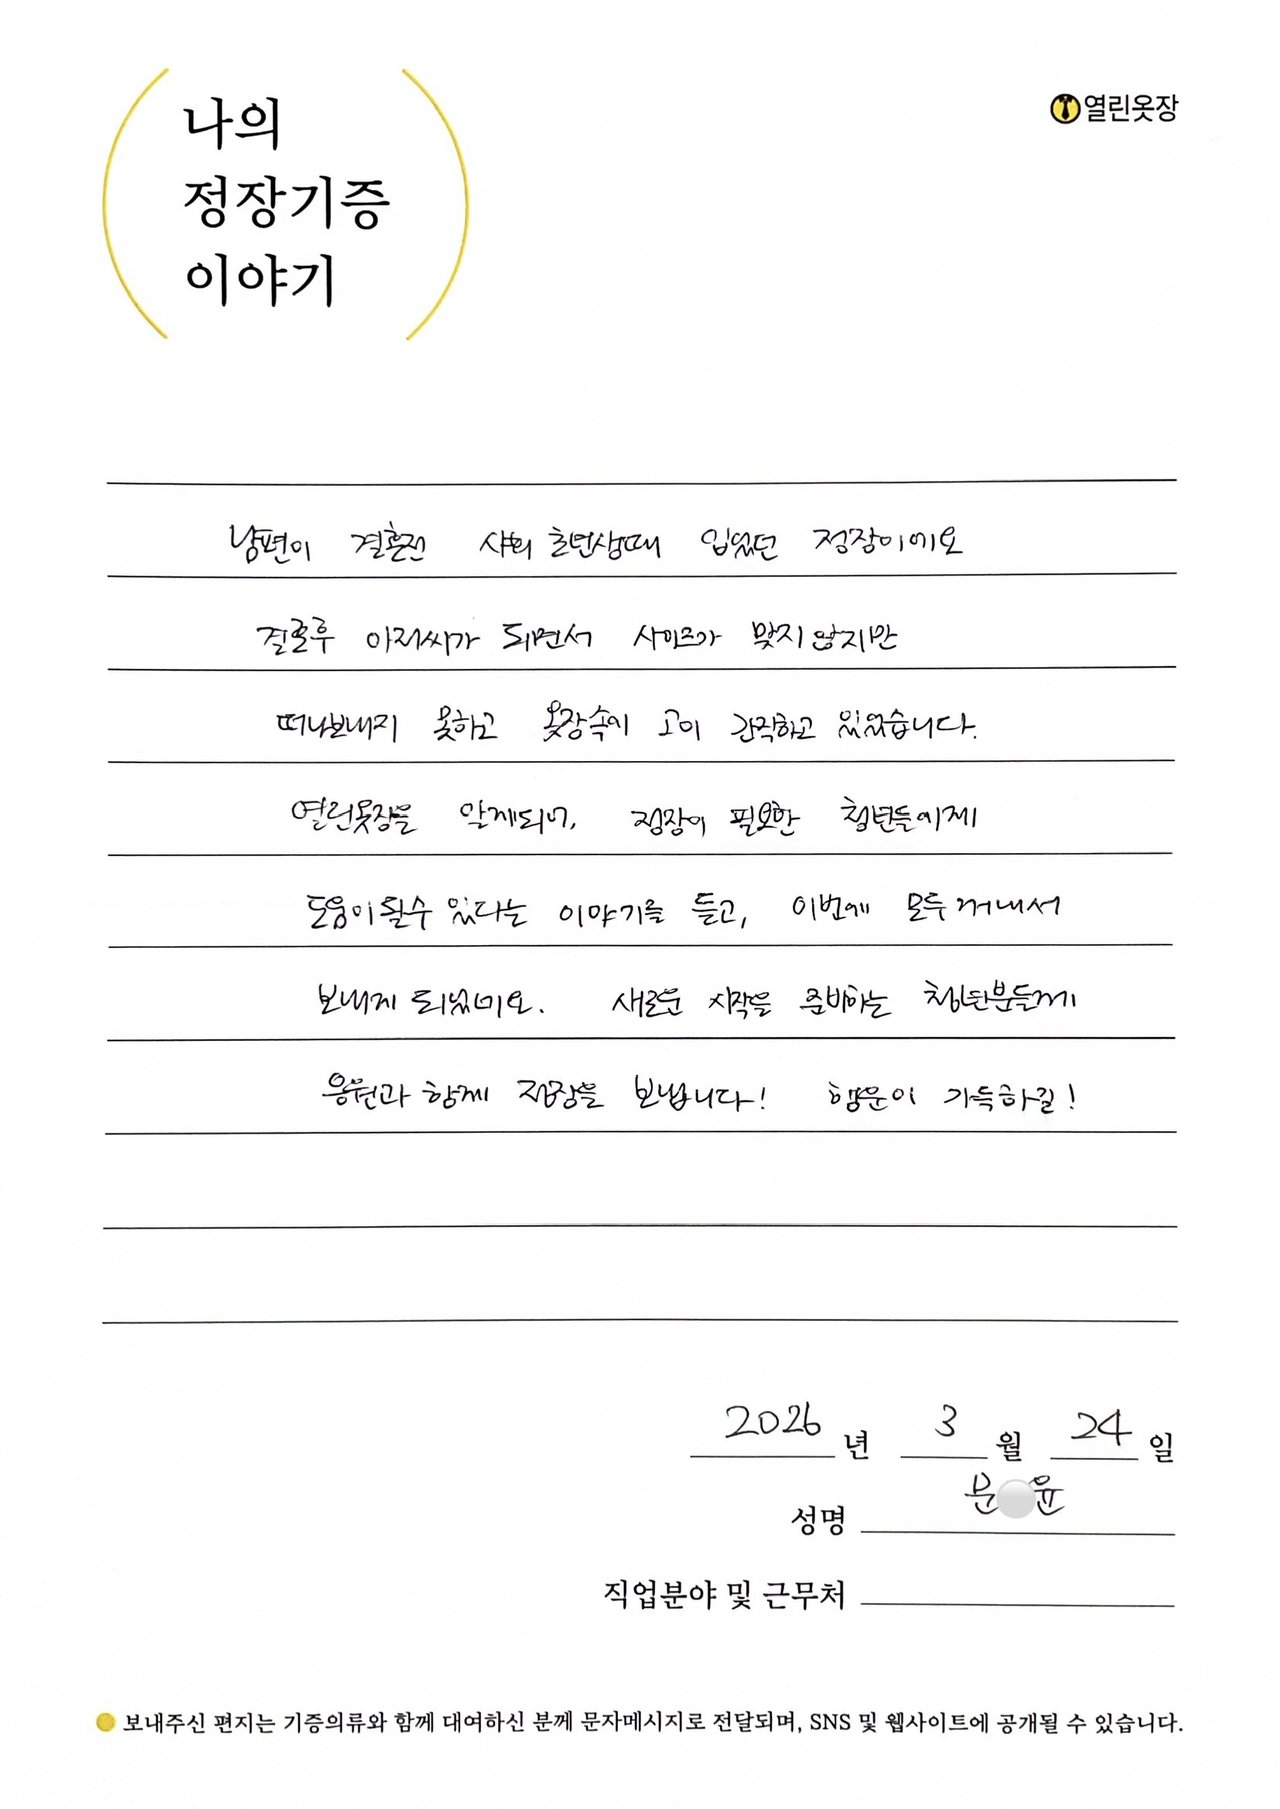 나의
정장기증
이야기
열린옷장
남편이 결혼전 사회 초년생때 입었던 정장이에요
결혼후 아저씨가 되면서 사이즈가 맞지 않지만
떠나보내지 못하고 옷장속에 고이 간직하고 있었습니다.
열린옷장을 알게되어, 정장이 필요한 청년들에게
도움이 될수 있다는 이야기를 듣고, 이번에 모두 꺼내서
보내게 되었네요. 새로운 시작을 준비하는 청년분들께
응원과 함께 정장을 보냅니다! 행운이 가득하길!
2026 년 3 월 24 일
성명 문 윤
직업분야 및 근무처
보내주신 편지는 기증의류와 함께 대여하신 분께 문자메시지로 전달되며, SNS 및 웹사이트에 공개될 수 있습니다.